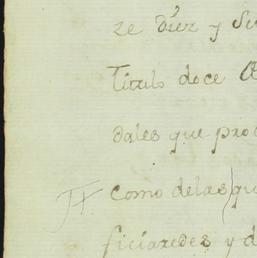 ze diez y Se
Titulo doce
dales que pro
como delas qu
ficiaredes y d